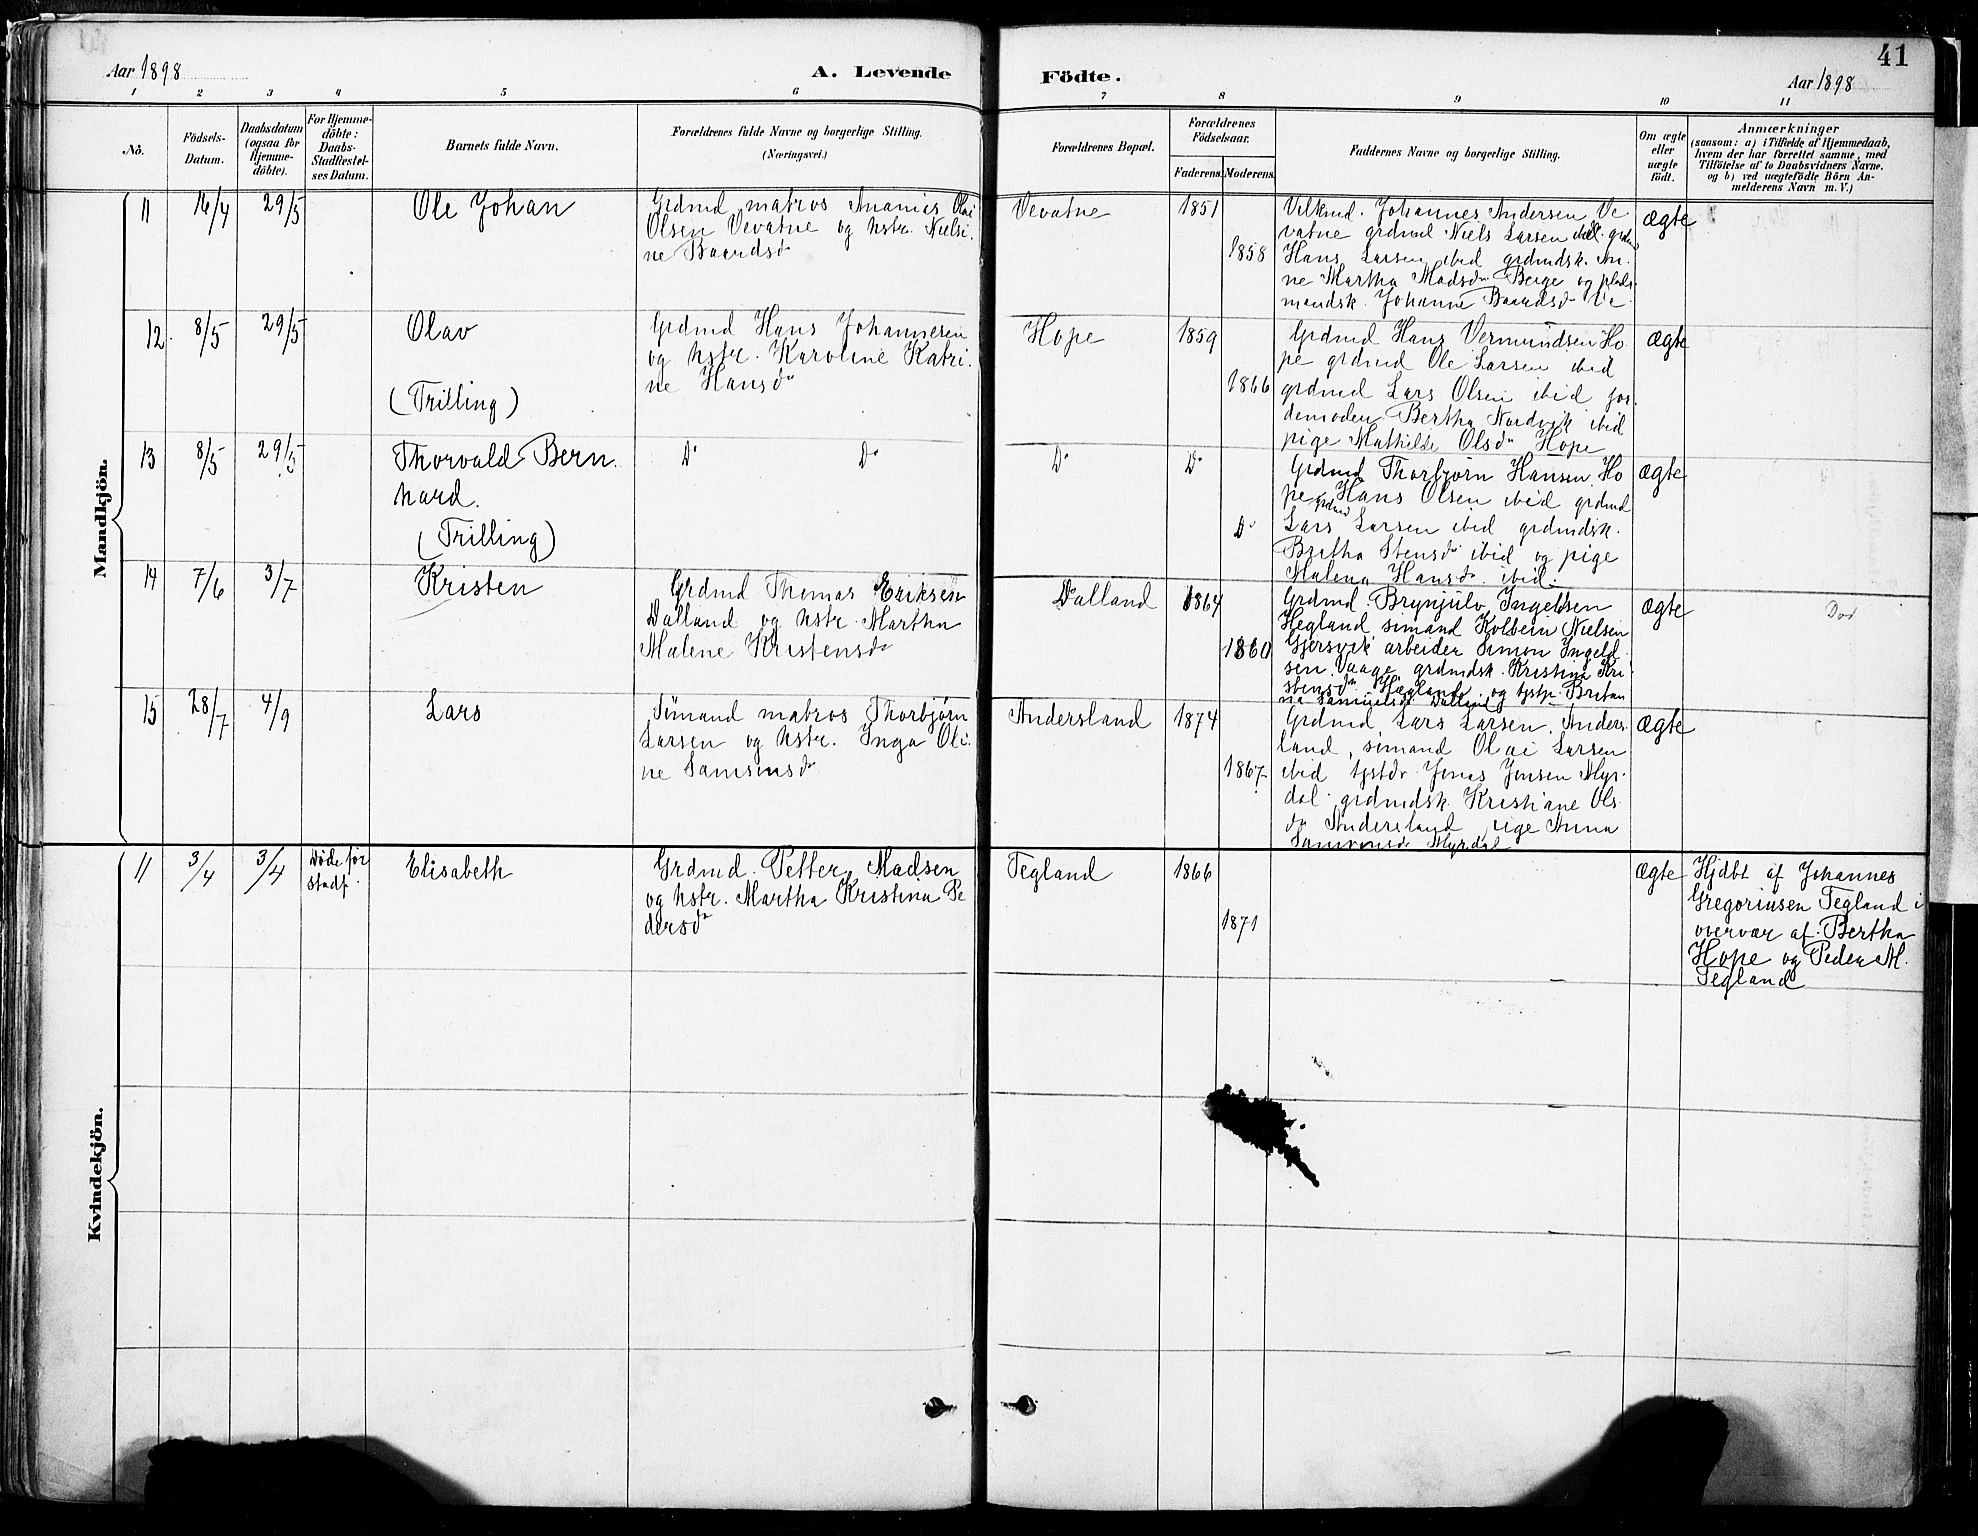 41
Aar 1898
A. Levende
Födte.
Aar 1898
1 2 3 4 5 6 7 8 9 10 11
No.
Födsels-
Datum.
Daabsdatum
(ogsaa for
Hjemme-
döbte).
For Hjemme-
döbte:
Daabs-
Stadfæstel-
ses Datum.
Barnets fulde Navn.
Forældrenes fulde Navne og borgerlige Stilling.
(Næringsvei.)
Forældrenes Bopæl.
Forældrenes
Födselsaar.
Faderens. Moderens.
Faddernes Navne og borgerlige Stilling.
Om ægte
eller
uægte
födt.
Anmærkninger
(saasom: a) i Tilfælde af Hjemmedaab,
hvem der har forrettet samme, med
Tilföielse af to Daabsvidners Navne.
og b) ved uægtefödte Börn An-
melderens Navn m. V.)
Mandkjön.
11 16/4 29/5
Ole Johan
Grdmd matros Ananias Olai
Olsen Vevatne og hstr. Nielsi-
ne Baardsdr
Vevatne
1851
1858
Johannes Andersen Ve
vatne grdmd Niels Larsen ibid grdmd
Hans Larsen ibid grdmdsk. An-
ne Martha Madsdr Berge og plads-
mandsk. Johanne Baardsdr Ve
ægte
12. 8/5 29/5
Olav
(Trilling)
Grdmd Hans Johannesen
og hstr. Karoline Katri-
ne Hansdr
Hope
1859
1866
Grdmd Hans Vermundsen Ho-
pe grdmd Ole Larsen ibid
grdmd Lars Olsen ibid jor-
demoder Bertha Nordvik ibid
pige Mathilde Olsdr Hope
ægte
13 8/5 29/5
Thorvald Bern-
hard.
(Trilling)
Do Do
Do
Do
Do
Grdmd Thorbjörn Hansen Ho
pe grdmd Hans Olsen ibid grdmd
Lars Larsen ibid grdmdsk.
Britha Stensdr ibid og pige
Malena Hansdr ibid.
ægte
14 7/6 3/7
Kristen
Grdmd Thomas Eriksen
Dalland og hstr. Martha
Malene Kristensdr
Dalland
1864
1860
Grdmd. Brynjulv Ingeldsen
Hegland, sömand Kolbein Nielsen
Gjersvik arbeider Simon Ingeld-
sen Vaage grdmdsk. Kristina Kri-
stensdr Hegland og tjstp. Britan-
na Samuelsdr Dalland
ægte
Död
15 28/7 4/9
Lars
Sömand matros Thorbjørn
Larsen og hstr. Inga Oli-
ne Samsonsdr
Andersland
1874
1867
Grdmd Lars Larsen Anders-
land, sömand Olai Larsen
ibid tjstdr Jonas Jonsen Myr-
dal grdmdsk. Kristiane Ols-
dr Andersland pige Anna
Samsonsdr Myrdal
ægte
Kvindekjön.
11 3/4 3/4
Döde før
stadf.
Elisabeth
Grdmd. Petter Madsen
og hstr. Martha Kristina Pe
dersdr
Tegland
1866
1871
ægte
Hjdbt af Johannes
Gregoriusen Tegland i
overvær af Bertha
Hope og Peder M.
Tegland